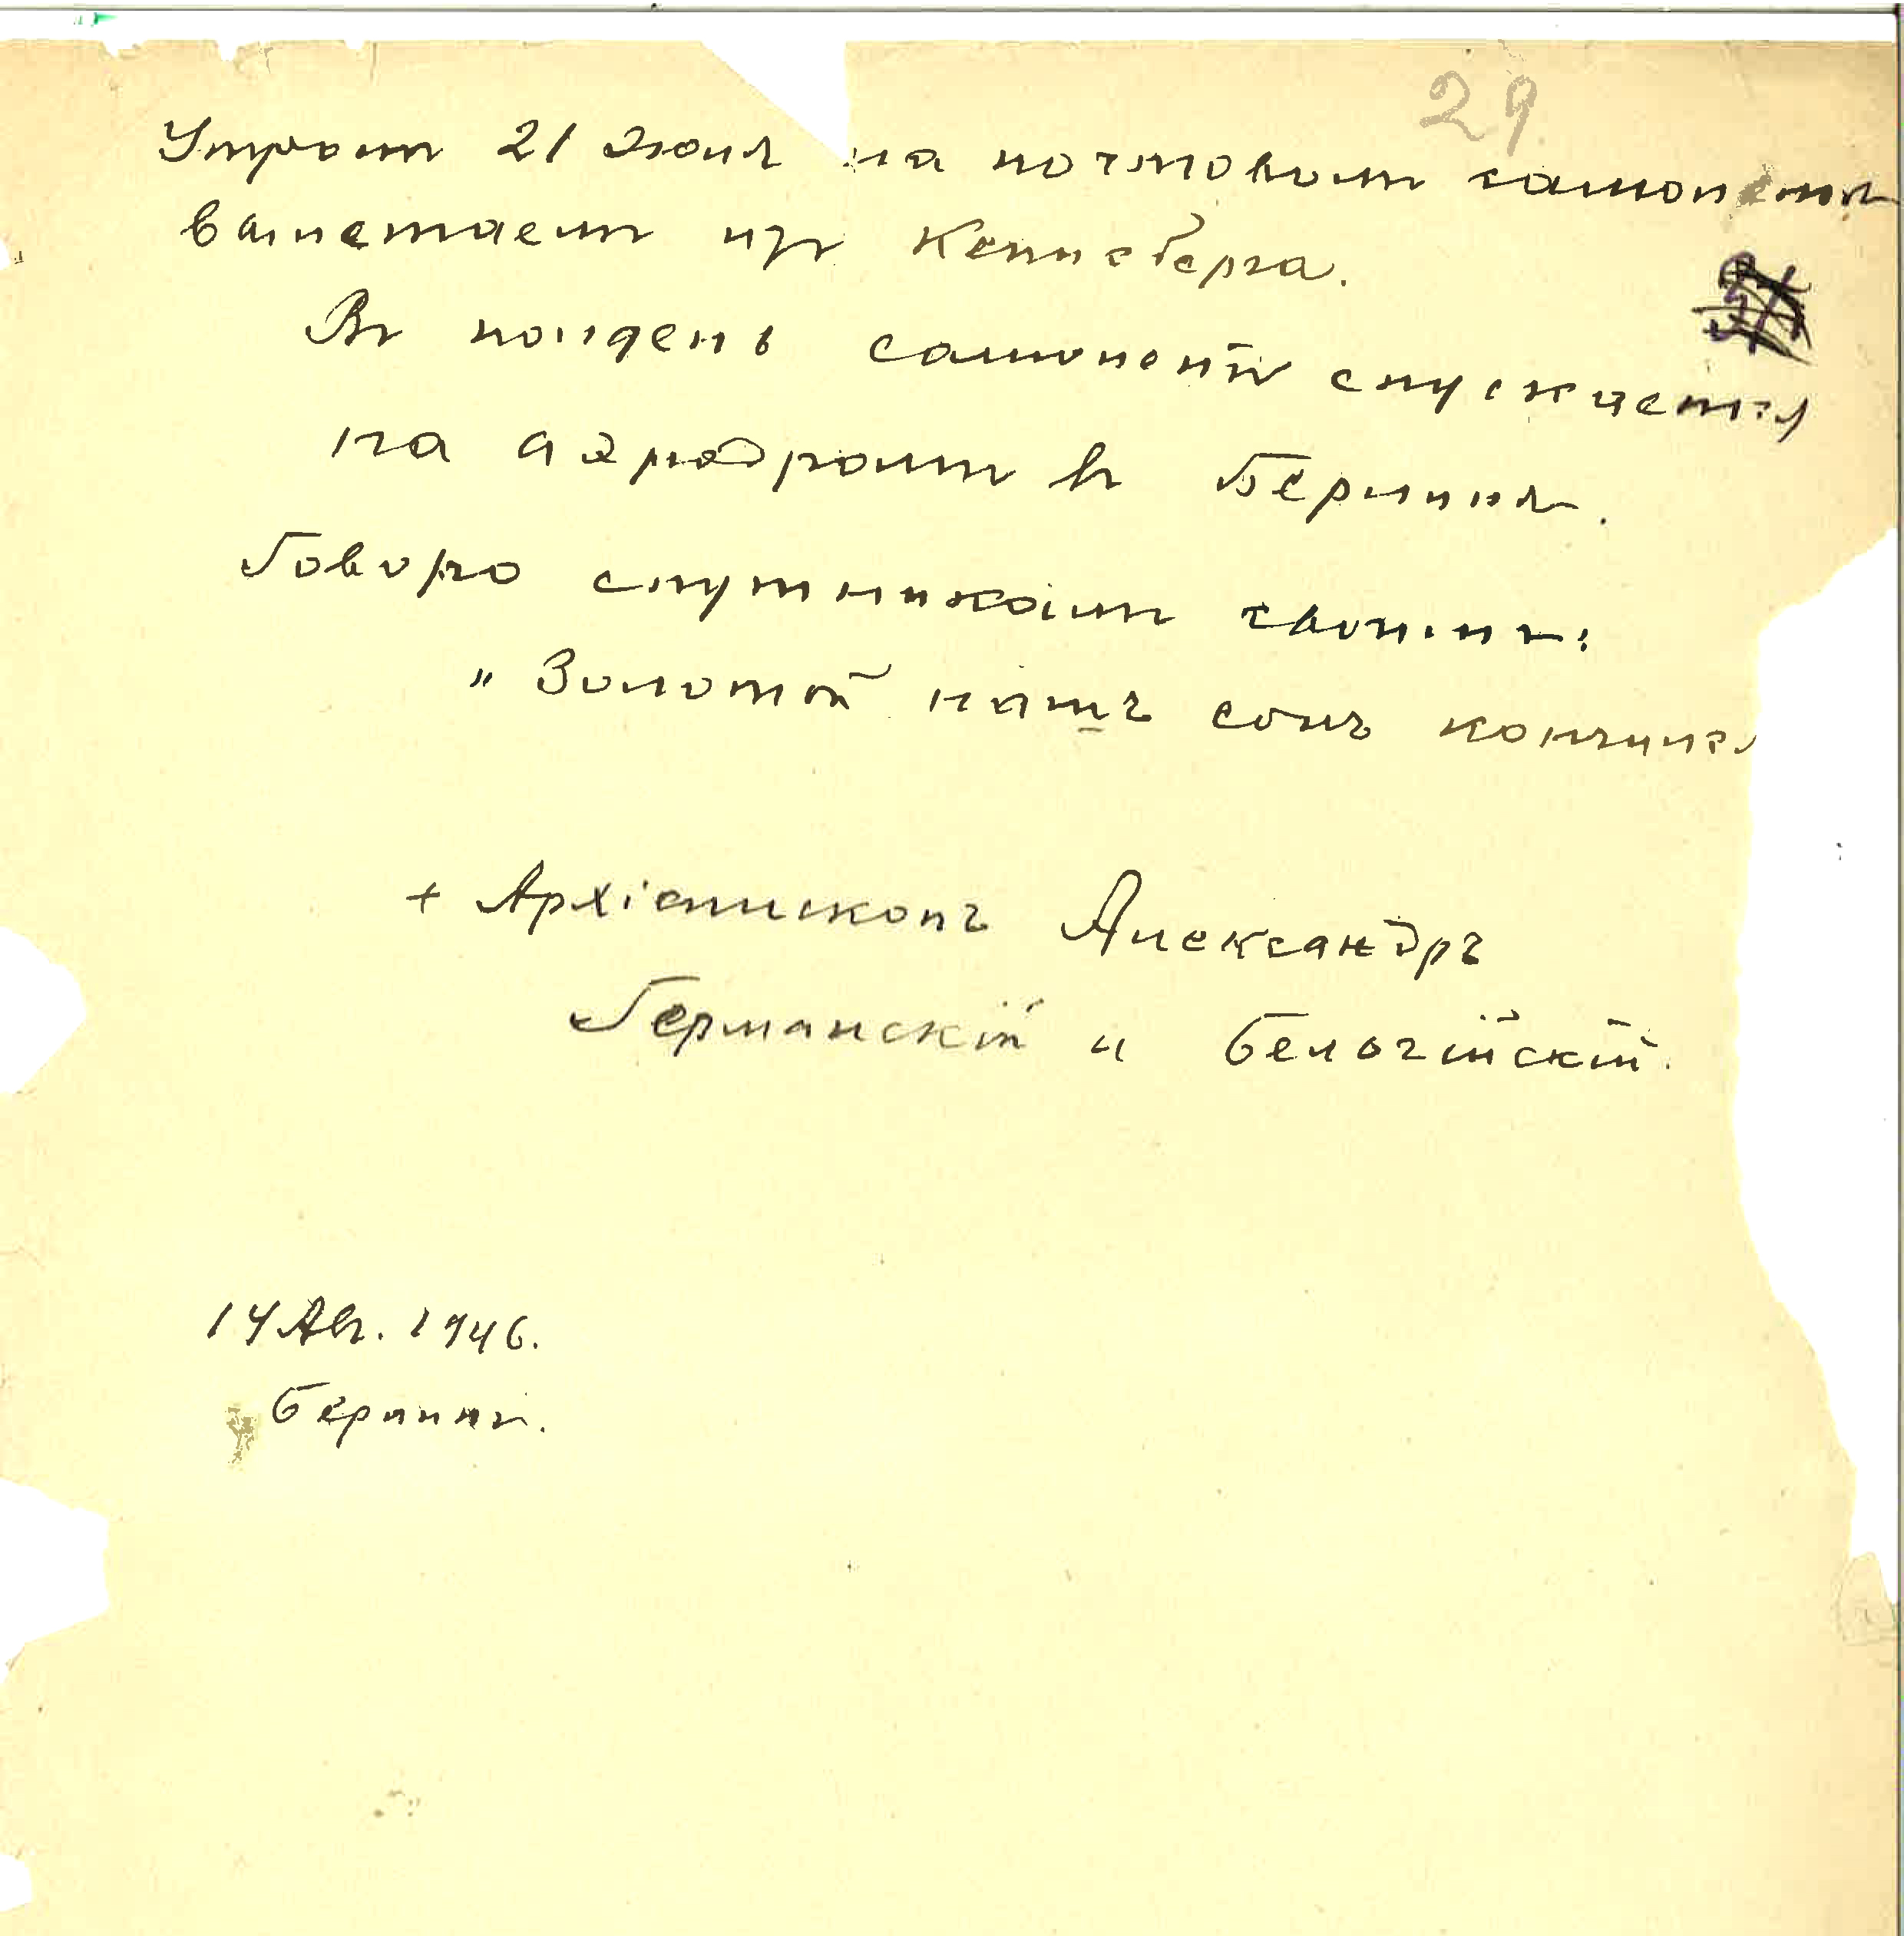 29
Утромъ 21 Июля на почтовомъ самолетѣ
вылетаемъ изъ Кенигсберга.
Въ полдень самолетъ спускается
на аэродромъ въ Берлинѣ.
Говорю спутникамъ своимъ:
„Золотой нашъ сонъ кончился
+ Архіепископъ Александръ
Германскій и Бельгійскій.
14 Авг. 1946.
Берлинъ.